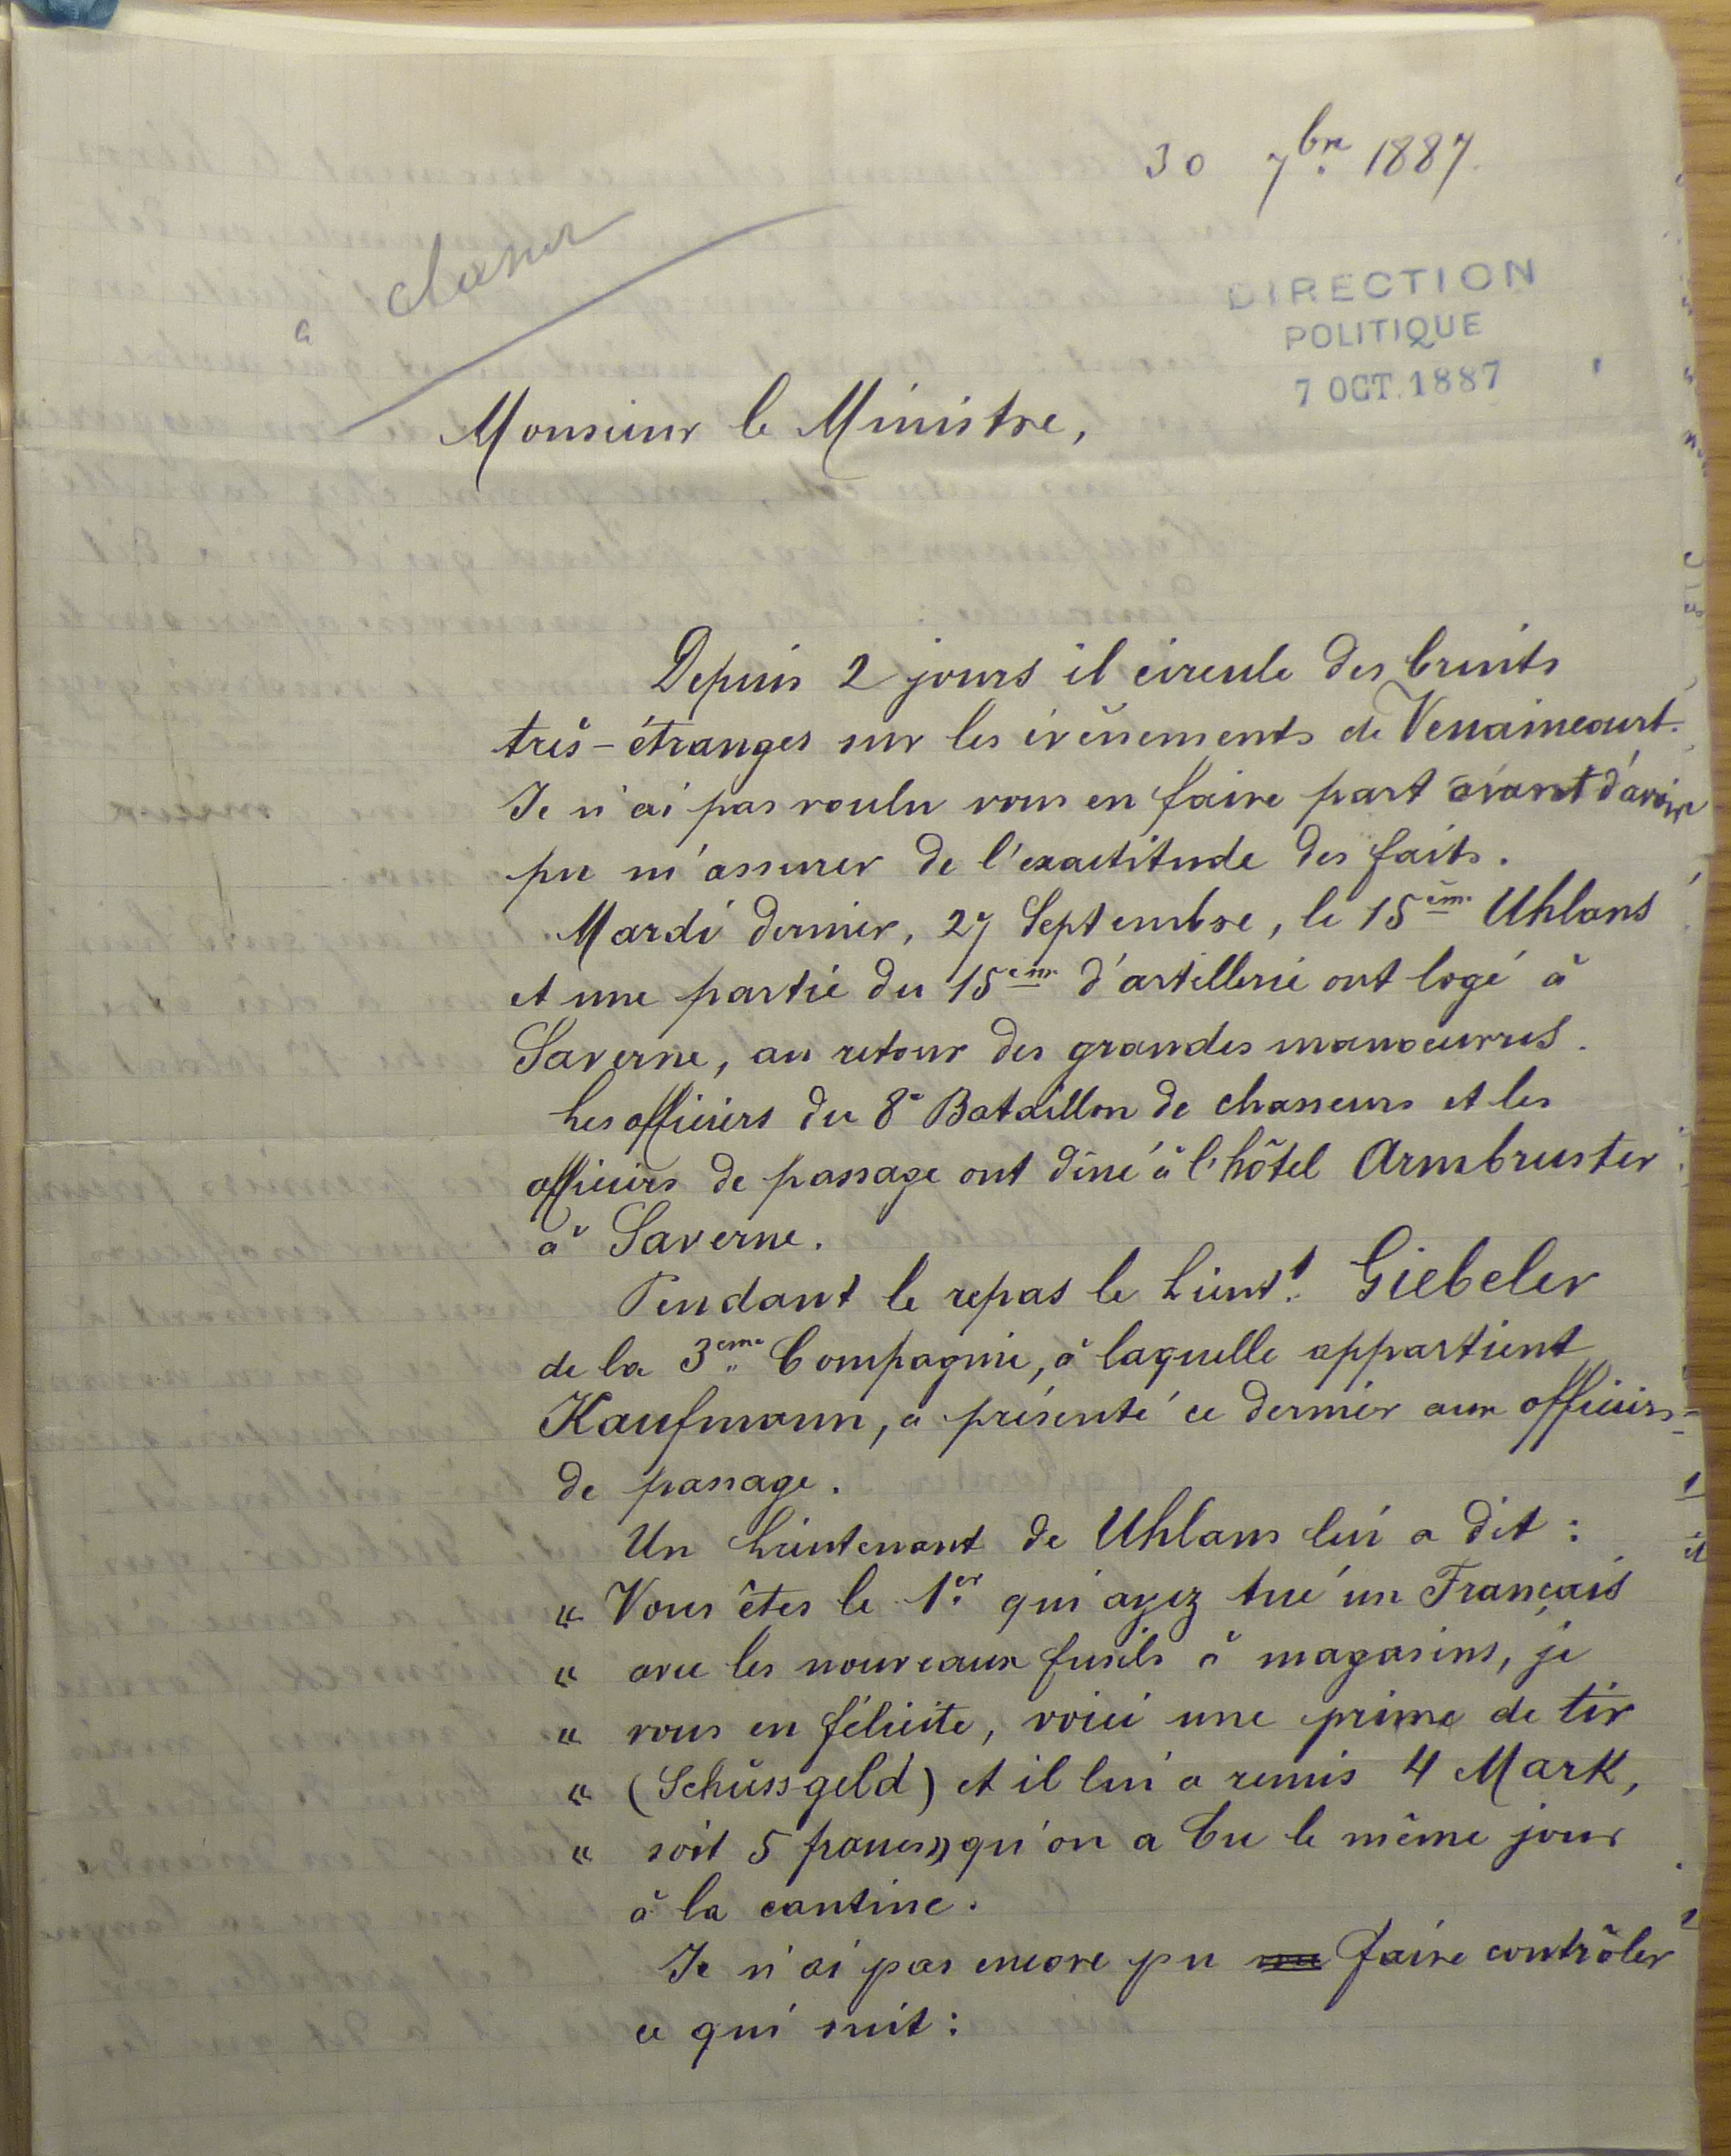 30 7bre 1887.
à classer
DIRECTION
POLITIQUE
7 OCT. 1887
Monsieur le Ministre,
Depuis 2 jours il circule des bruits
très-étranges sur les évènements de Vexaincourt.
Je n'ai pas voulu vous en faire part avant d'avoir
pu m'assurer de l'exactitude des faits.
Mardi dernier, 27 Septembre, le 15ème Uhlans
et une partie du 15ème d'artillerie ont logé à
Saverne, au retour des grandes manoeuvres.
Les officiers du 8e Bataillon de chasseurs et les
officiers de passage ont dîné à l'hôtel Armbruster
à Saverne.
Pendant le repas le Lieut. Giebeler
de la 3eme Compagnie, à laquelle appartient
Kaufmann, a présenté ce dernier aux officiers
de passage.
Un Lieutenant de Uhlans lui a dit :
« Vous êtes le 1er qui ayez tué un Français
« avec les nouveaux fusils à magasins, je
« vous en félicite, voici une prime de tir
« (Schussgeld) et il lui a remis 4 Mark,
« soit 5 francs » qu'on a bu le même jour
à la cantine.
Je n'ai pas encore pu faire contrôler
ce qui suit :